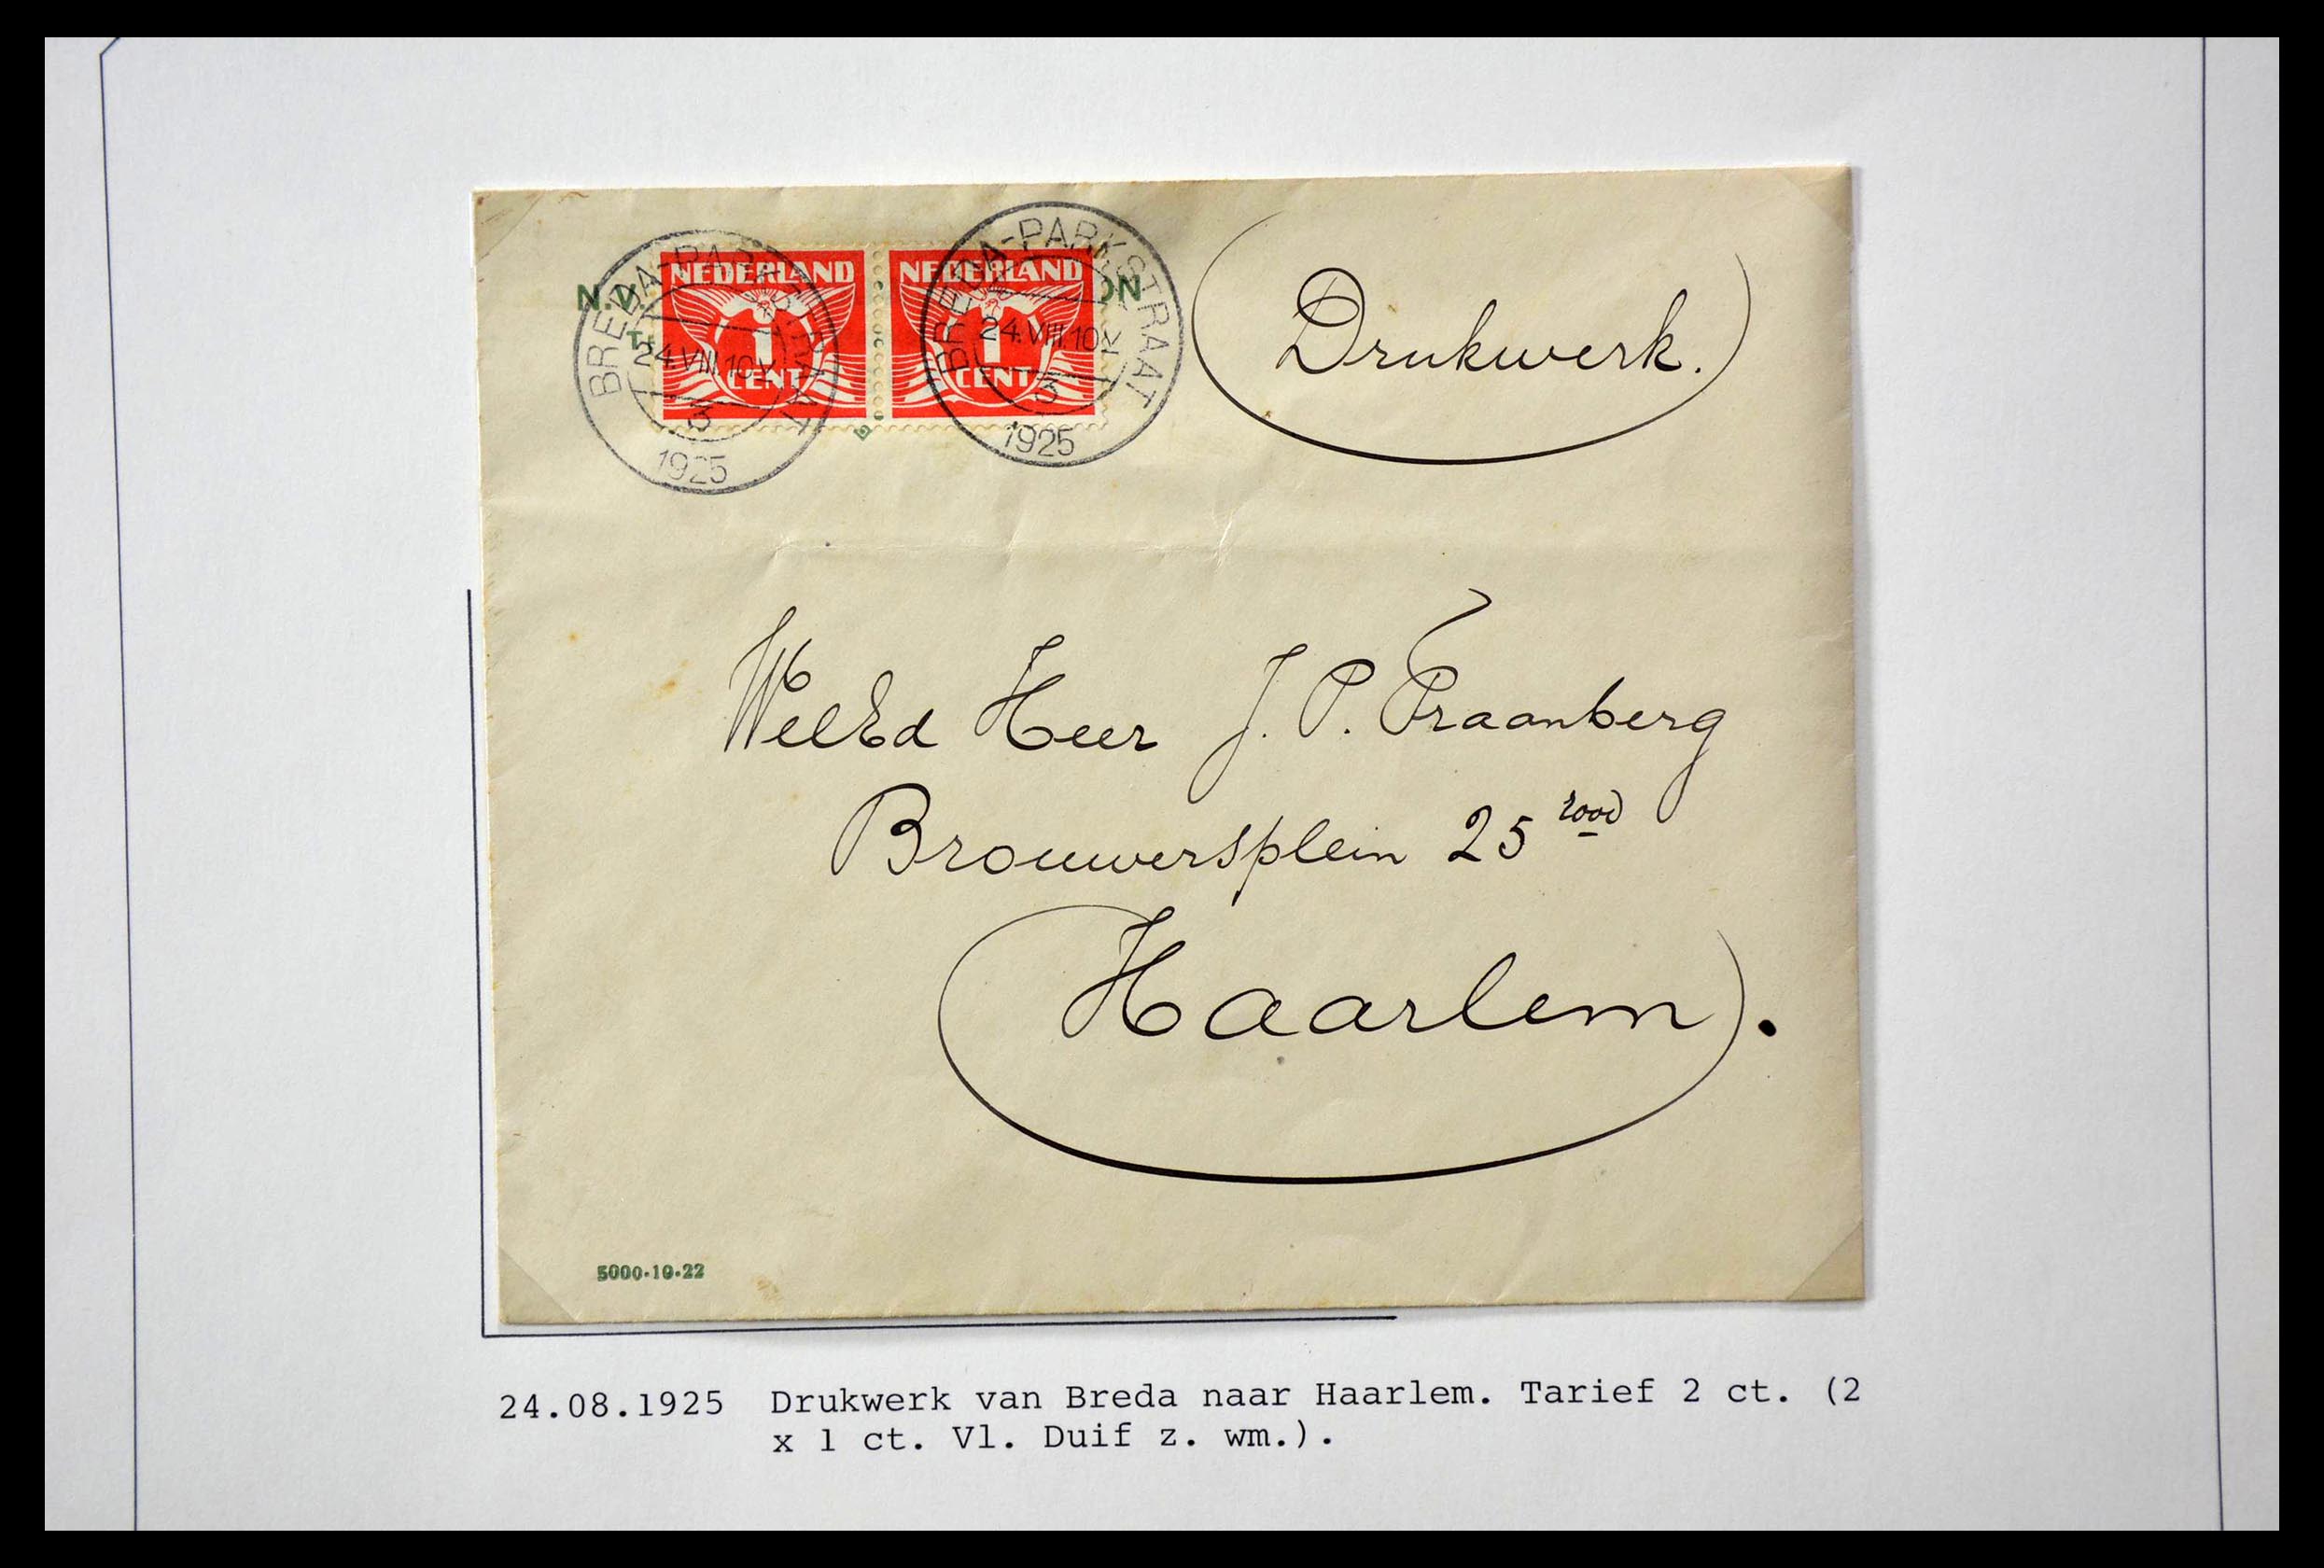 N.V. ON
NEDERLAND NEDERLAND
1 1
CENT CENT
BREDA-PARKSTRAAT
24.VIII.10V
3
1925
BREDA-PARKSTRAAT
24.VIII.10V
3
1925
Drukwerk.
WelEd Heer J. P. Praanberg
Brouwersplein 25 rood
Haarlem.
5000-10-22
24.08.1925 Drukwerk van Breda naar Haarlem. Tarief 2 ct. (2
x 1 ct. Vl. Duif z. wm.).